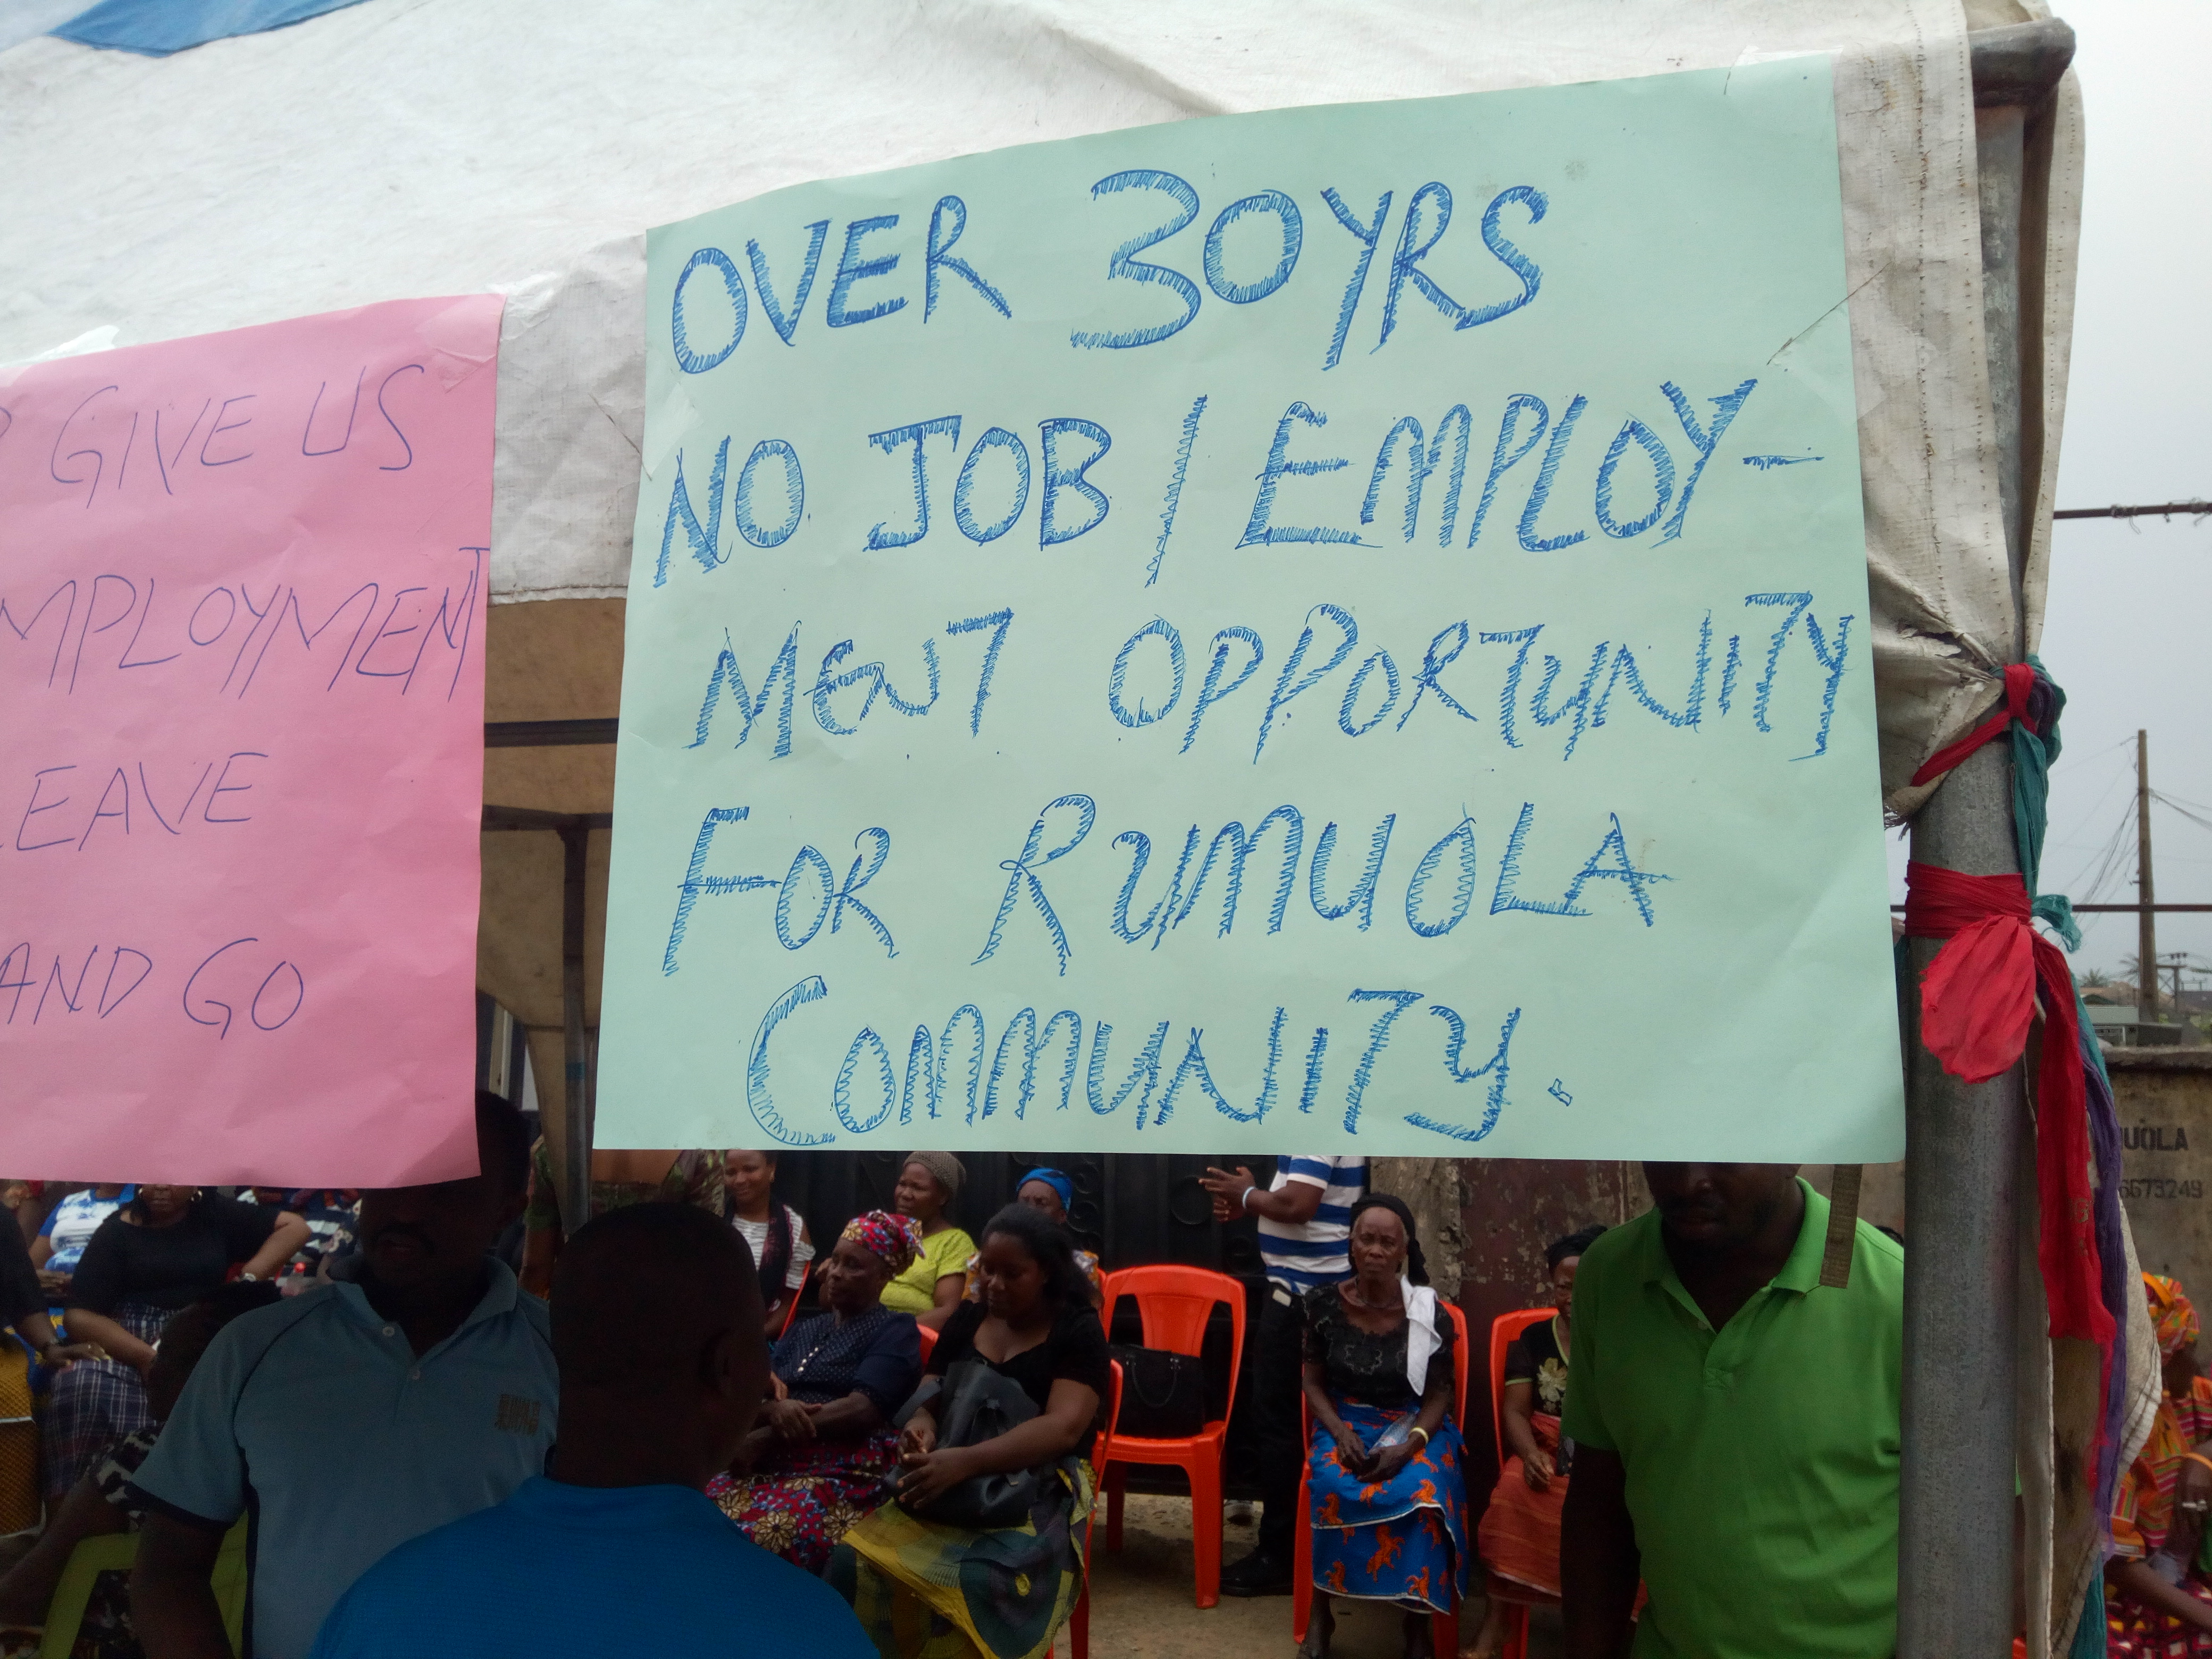 GIVE US
MPLOYMENT
EAVE
AND GO
OVER 30YRS
NO JOB / EMPLOY-
MENT OPPORTUNITY
FOR RUMUOLA
COMMUNITY.
UOLA
6673249